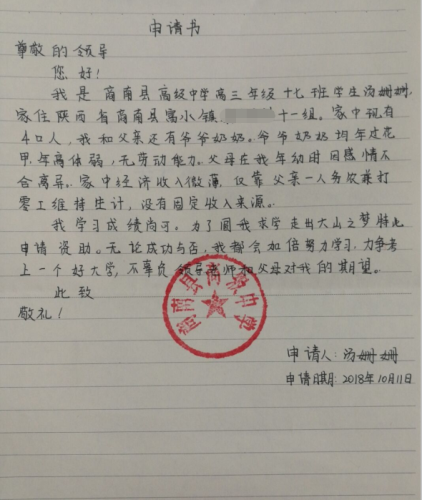 申请书
尊敬的领导
您好！
我是商南县高级中学高三年级十七班学生汤姗姗.
家住陕西省商南县富水镇 十一组。家中现有
4口人，我和父亲还有爷爷奶奶。爷爷奶奶均年过花
甲，年高体弱，无劳动能力。父母在我年幼时因感情不
合离异。家中经济收入微薄，仅靠父亲一人务农兼打
零工维持生计，没有固定收入来源。
我学习成绩尚可，为了圆我求学走出大山之梦特此
申请资助。无论成功与否，我都会加倍努力学习，力争考
上一个好大学，不辜负领导老师和父母对我的期望。
此致
敬礼！
商南县高级中学
申请人：汤姗姗
申请日期：2018年10月11日